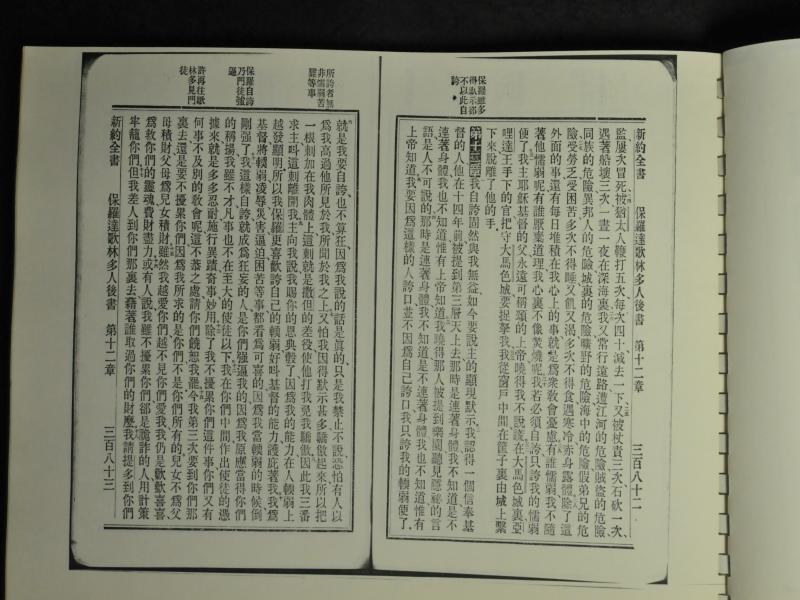 保羅雖多
得啟示卻
不以此自
誇
新約全書　保羅達歌林多人後書　第十二章　三百八十二
監屢次冒死被猶太人鞭打五次每次四十減去一下、又被杖責三次、石砍一次、
遇著船壞三次、一晝一夜在深海裏我又常行遠路遭江河的危險賊盜的危險
同族的危險異邦人的危險城裏的危險曠野的危險海中的危險假弟兄的危
險受勞乏受困苦多次不得睡又飢又渴多次不得食遇寒冷赤身露體除了這
外面的事還有每日堆積在我心上的事就是爲衆教會憂慮有誰懦弱我不隨
著他懦弱呢有誰厭棄道理我心裏不像焚燒呢我若必須自誇只誇我的懦弱
便了我主耶穌基督的父永遠可稱頌的上帝曉得我不說謊在大馬色城裏亞
哩達王手下的官把守大馬色城要捉拏我我從窗戶中間在筐子裏由城上縋
下來脫離了他的手、
第十二章我自誇固然與我無益如今要說主的顯現默示我認得一個信奉基
督的人他在十四年前被提到第三層天上去那時是連著身體我不知道是不
連著身體我也不知道惟有上帝知道我曉得那人被提到樂園聽見隱祕的言
語是人不可說的那時是連著身體我不知道是不連著身體我也不知道惟有
上帝知道我要因爲這樣的人誇口並不因爲自己誇口我只誇我的輭弱便了、
所誇者無
非懦弱苦
難等事
保羅自誇
乃門徒強
逼
許再往歌
林多見門
徒
就是我要自誇也不算狂因爲我說的話是眞的只是我禁止不說恐怕有人以
爲我高過他所見於我所聞於我之上又怕我因得默示甚多驕傲起來所以把
一根刺加在我肉體上這刺就是撒但的差役使他打我免我驕傲因此我三番
求主叫這刺離開我主向我說我賜你的恩典彀了因爲我的能力在人輭弱上
越發顯明所以我保羅更喜歡誇自己的輭弱好叫基督的能力護庇著我我爲
基督將輭弱凌辱災害逼迫困苦等事都看爲可喜的因爲我當輭弱的時候倒
剛强了我這樣自誇就成爲狂妄的人是你們强逼我的因爲我原應當得你們
的稱揚我雖不才凡事也不在至大的使徒以下我在你們中間作出使徒的憑
據來就是多多忍耐施行異蹟奇事妙用除了我不擾累你們這件事你們又有
何事不及別的教會呢這不恭之處請你們饒恕我罷今我第三次要到你們那
裏去還是要不擾累你們因爲我所求的是你們不是你們所有的兒女不爲父
母積財父母爲兒女積財雖然我越愛你們越不見你們愛我我仍是歡歡喜喜
爲救你們的靈魂費財盡力或有人說我雖不擾累你們卻是詭詐的人用計策
牢籠你們但我差人到你們那裏去藉著誰取過你們的財麼我請提多到你們
新約全書　保羅達歌林多人後書　第十二章　三百八十三